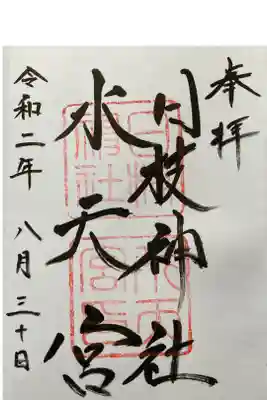 奉拝
日枝神社
水天宮
令和二年 八月三十日